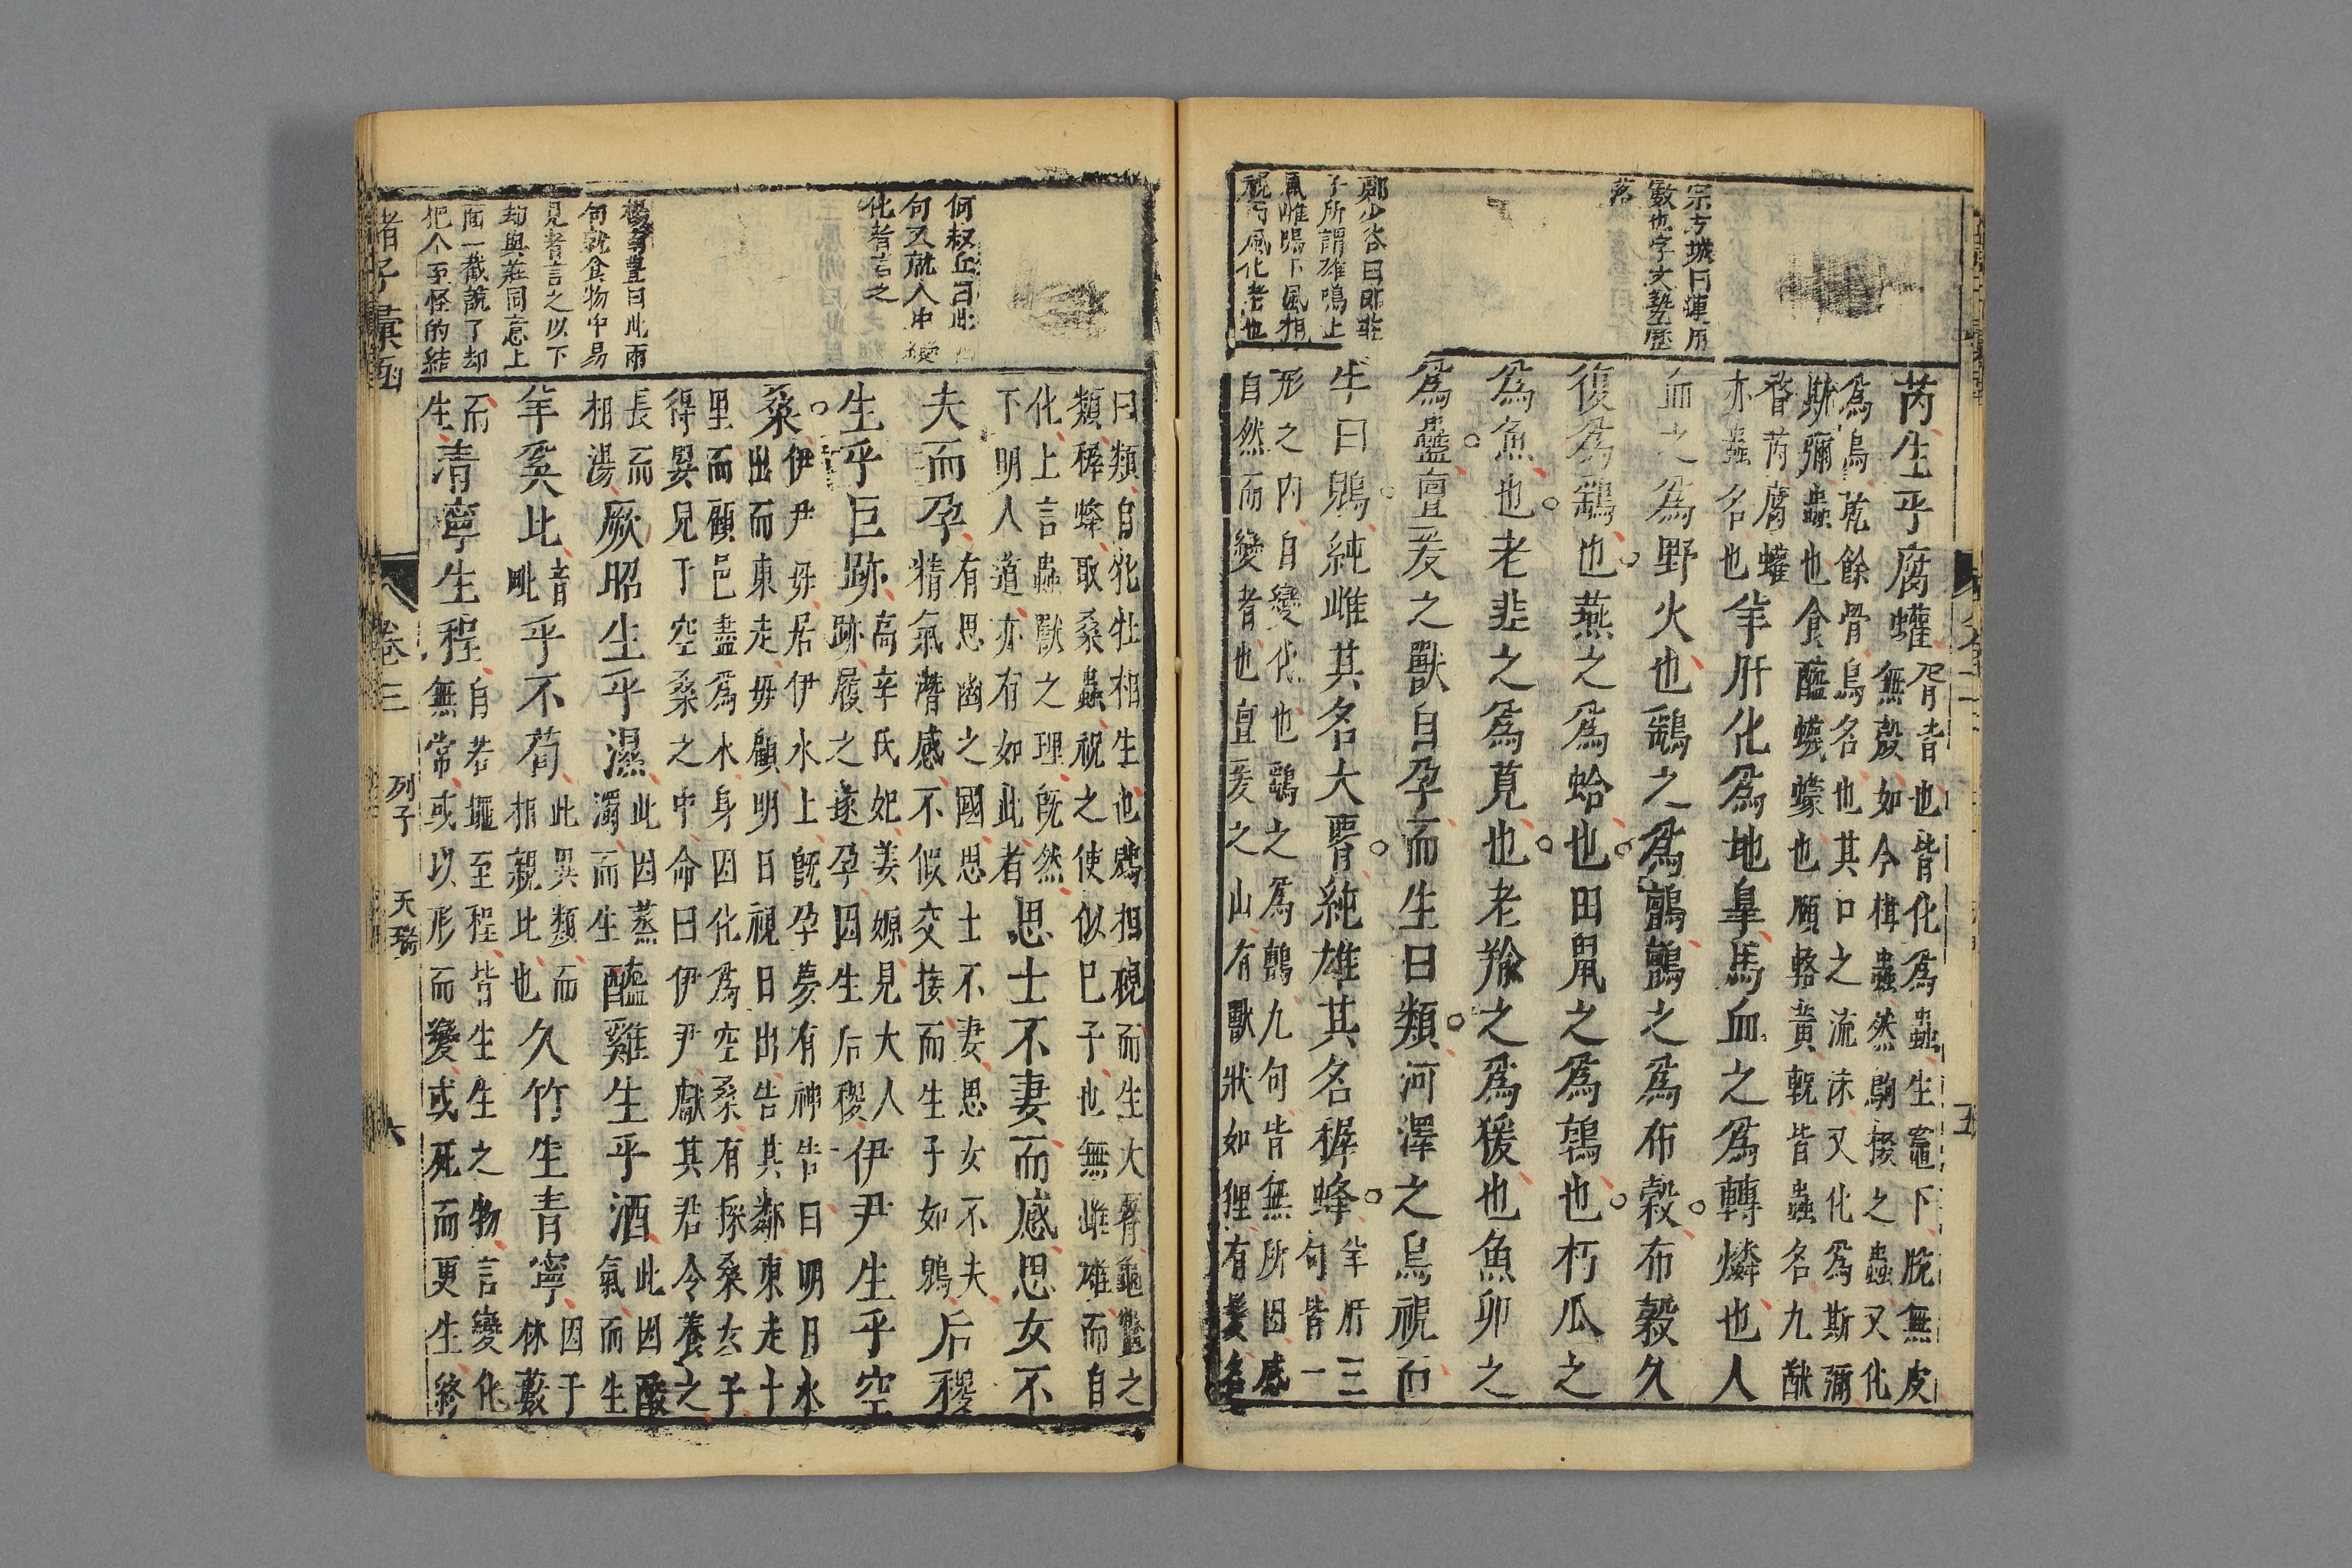 宗方城曰連用
數也字文勢歷
落
鄭少谷曰即莊
子所謂雄鳴上
風雌鳴下風相
視而風化者也
芮生乎腐蠸
胥者也皆化為蟲生竈下脫無皮
無殼如今楫蟲然駒掇之蟲又化
為鳥乾餘骨鳥名也其口之流沫又化為斯彌
斯彌蟲也食醯蠛蠓也頤輅黃軦皆蟲名九猷
瞀芮腐蠸
亦蟲名也
羊肝化為地臯馬血之為轉燐也人
血之為野火也鷂之為鸇鸇之為布穀布穀久
復為鷂也燕之為蛤也田鼠之為鶉也朽瓜之
為魚也老韭之為莧也老羭之為猨也魚卵之
為蠱亶爰之獸自孕而生曰類河澤之鳥視而
生曰鶂純雌其名大腰純雄其名稺蜂
羊肝三
句皆一
形之內自變化也鷂之為鸇九句皆無所因感
自然而變者也亶爰之山有獸狀如狸有髮名
何叔丘曰此兩
句又就人中變
化者言之
曰此兩
句就食物中易
見者言之以下
却與莊同意上
面一截說了却
把个至怪的結
曰類自牝牡相生也鶂相視而生大腰龜鱉之
類稺蜂取桑蟲祝之使似己子也無雌雄而自
化上言蟲獸之理既然
下明人道亦有如此者
思士不妻而感思女不
夫而孕
有思幽之國思士不妻思女不夫
精氣潛感不假交接而生子如鶂
后稷
生乎巨跡
高辛氏妃姜嫄見大人
跡履之遂孕因生后稷
伊尹生乎空
桑
伊尹母居伊水上既孕夢有神告曰明日水
出而東走毋顧明日視日出告其鄰東走十
里而顧邑盡為水身因化為空桑有採桑女子
得嬰兒于空桑之中命曰伊尹獻其君令養之
長而
相湯
厥昭生乎濕
此因蒸
濁而生
醯雞生乎酒
此因酸
氣而生
羊奚比
音
毗
乎不荀
此異類而
相親比也
久竹生青寧
因于
林藪
而
生
清寧生程
自若蠅至程皆生生之物言變化
無常或以形而變或死而更生終
諸子彙函
卷三
列子
天瑞
六